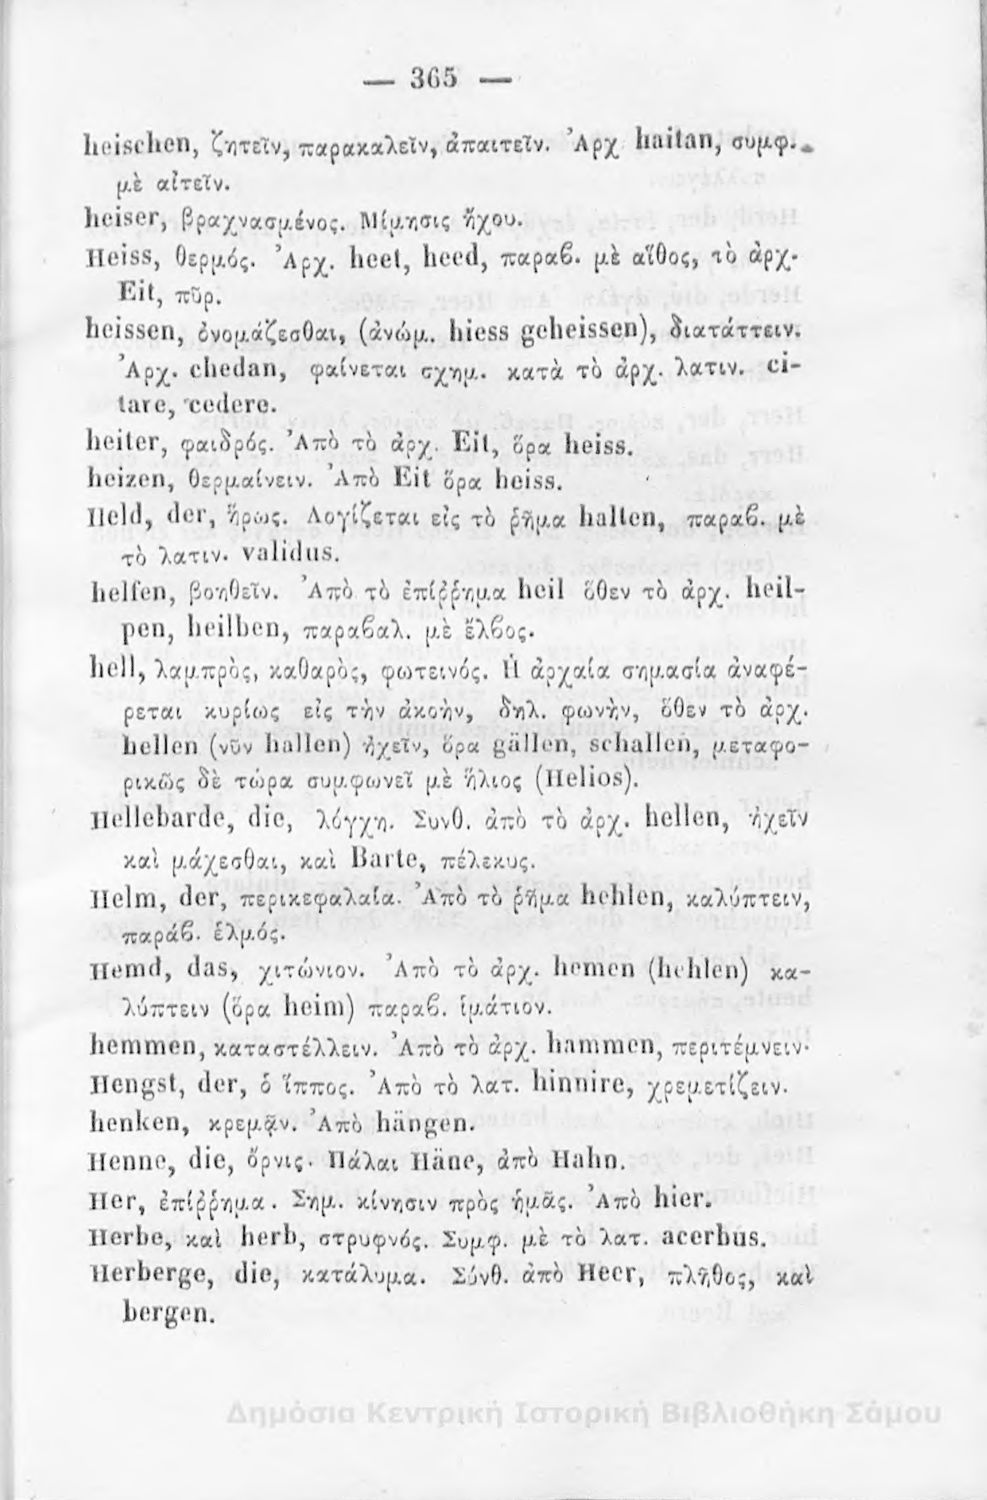 — 365 —
heischen, ζητεῖν, παρακαλεῖν, ἀπαιτεῖν. Ἀρχ haitan, συμφ.
μὲ αἰτεῖν.
heiser, βραχνασμένος. Μίμησις ἤχου.
Heiss, θερμός. Ἀρχ. heet, heed, παραβ. μὲ αἴθος, τὸ ἀρχ.
Eit, πῦρ.
heissen, ὀνομάζεσθαι, (ἀνώμ. hiess geheissen), διατάττειν.
Ἀρχ. chedan, φαίνεται σχημ. κατὰ τὸ ἀρχ. λατιν. ci-
tare, cedere.
heiter, φαιδρός. Ἀπὸ τὸ ἀρχ. Eit, ὅρα heiss.
heizen, θερμαίνειν. Ἀπὸ Eit ὅρα heiss.
Held, der, ἥρως. Λογίζεται εἰς τὸ ῥῆμα halten, παραβ. μὲ
τὸ λατιν. validus.
helfen, βοηθεῖν. Ἀπὸ τὸ ἐπίῤῥημα heil ὅθεν τὸ ἀρχ. heil-
pen, heilben, παραβαλ. μὲ ἔλβος.
hell, λαμπρὸς, καθαρὸς, φωτεινός. Ἡ ἀρχαία σημασία ἀναφέ-
ρεται κυρίως εἰς τὴν ἀκοὴν, δηλ. φωνὴν, ὅθεν τὸ ἀρχ.
hellen (νῦν hallen) ἠχεῖν, ὅρα gällen, schallen, μεταφο-
ρικῶς δὲ τώρα συμφωνεῖ μὲ ἥλιος (Helios).
Hellebarde, die, λόγχη. Συνθ. ἀπὸ τὸ ἀρχ. hellen, ἠχεῖν
καὶ μάχεσθαι, καὶ Barte, πέλεκυς.
Helm, der, περικεφαλαία. Ἀπὸ τὸ ῥῆμα hehlen, καλύπτειν,
παράβ. ἑλμός.
Hemd, das, χιτώνιον. Ἀπὸ τὸ ἀρχ. hemen (hehlen) κα-
λύπτειν (ὅρα heim) παραβ. ἱμάτιον.
hemmen, καταστέλλειν. Ἀπὸ τὸ ἀρχ. hammen, περιτέμνειν.
Hengst, der, ὁ ἵππος. Ἀπὸ τὸ λατ. hinnire, χρεμετίζειν.
henken, κρεμᾷν. Ἀπὸ hängen.
Henne, die, ὄρνις. Πάλαι Häne, ἀπὸ Hahn.
Her, ἐπίῤῥημα. Σημ. κίνησιν πρὸς ἡμᾶς. Ἀπὸ hier.
Herbe, καὶ herb, στρυφνός. Συμφ. μὲ τὸ λατ. acerbus.
Herberge, die, κατάλυμα. Σύνθ. ἀπὸ Heer, πλῆθος, καὶ
bergen.
Δημόσια Κεντρική Ιστορική Βιβλιοθήκη Σάμου